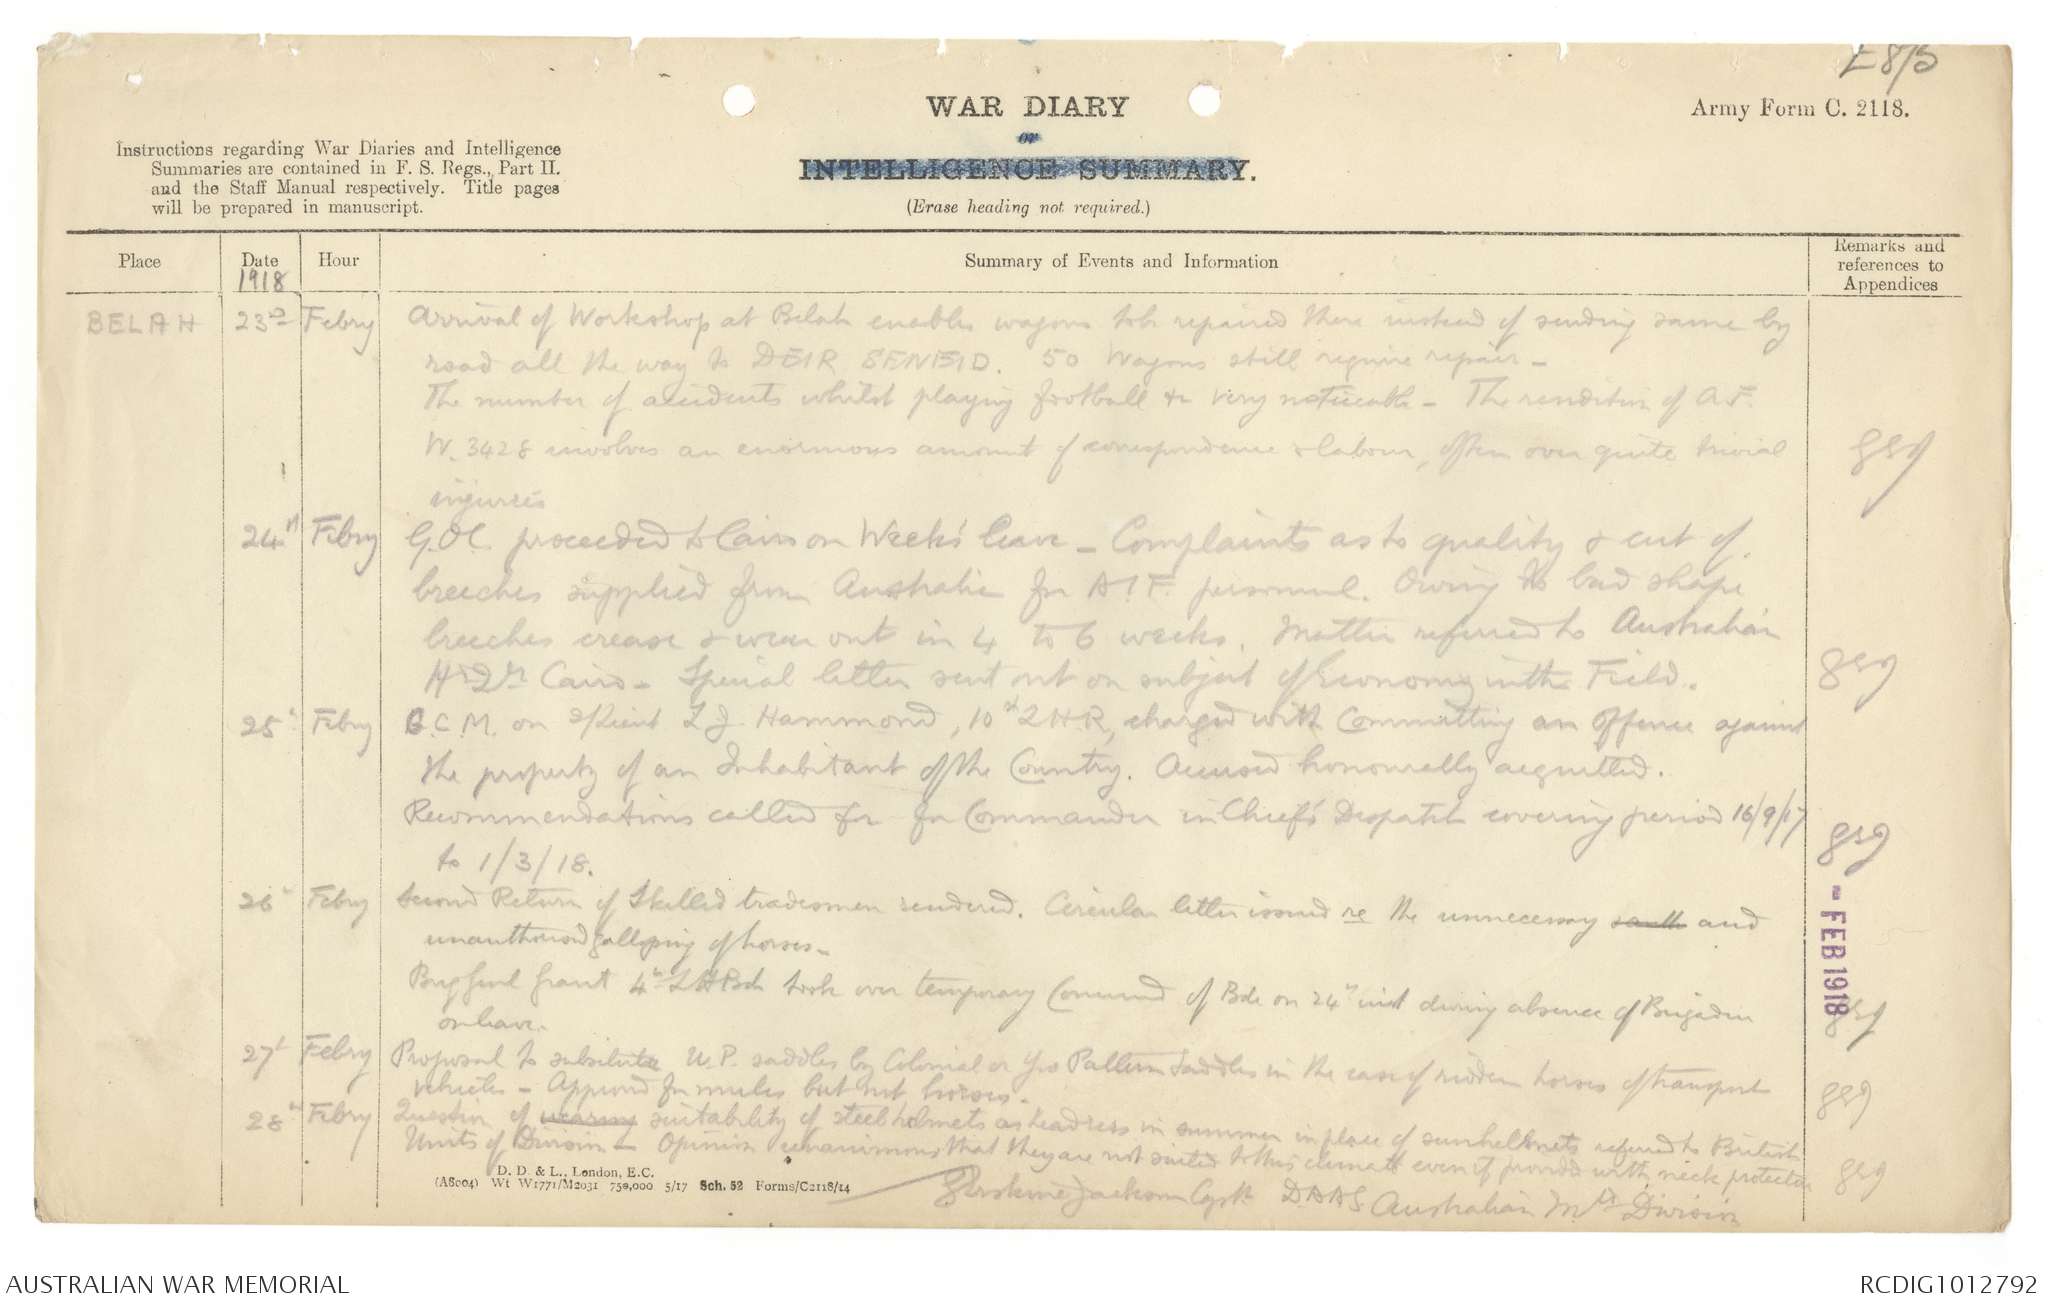 E8/3
WAR DIARY
or
INTELLIGENCE SUMMARY.
(Erase heading not required.)
Army Form C. 2118.
Instructions regarding War Diaries and Intelligence
Summaries are contained in F. S. Regs., Part II.
and the Staff Manual respectively. Title pages
will be prepared in manuscript.
Place
Date
1918
Hour
Summary of Events and Information
Remarks and
references to
Appendices
BELAH 23rd Febry Arrival of Workshop at Belah enables wagons to be repaired there instead of sending same by
road all the way to DEIR SENEID. 50 Wagons still require repair -
The number of accidents whilst playing football is very noticeable - The rendition of A.F.
W. 3428 involves an enormous amount of correspondence & labour, often over quite trivial
injuries
24th Febry G.O.C. proceeded to Cairo on Week's leave - Complaints as to quality & cut of
breeches supplied from Australia for A.I.F. personnel. Owing to bad shape
breeches crease & wear out in 4 to 6 weeks. Matter referred to Australian
Hd Qrs Cairo - Special letter sent out on subject of Economy in the Field.
25th Febry G.C.M. on 2/Lieut L J. Hammond, 10th LHR, charged with Committing an offence against
the property of an Inhabitant of the Country. Accused honourably acquitted.
Recommendations called for for Commander in Chief's Despatch covering period 16/9/17
to 1/3/18.
26th Febry Second Return of Skilled tradesmen rendered. Circular letter issued re the unnecessary and
unauthorised galloping of horses -
Brig Genl Grant 4th LH Bde took over temporary Command of Bde on 24th inst during absence of Brigadier
on leave.
27th Febry Proposal to subsitute U.P. saddles by Colonial or Yeo Pattern Saddles in the case of ridden horses of transport
vehicles - Approved for mules but not horses -
28th Febry Question of wearing suitability of steel helmets as headdress in summer in place of sunhelmets referred to British
Units of Division - Opinion unanimous that they are not suited to this climate even if provided with neck protector
D. D. & L., London, E.C.
(A8004) Wt W1771/M2031 750,000 5/17 Sch. 52 Forms/C2118/14
Erskine Jackson Capt D.A.A.G. Australian Mtd Division
- FEB 1918
AUSTRALIAN WAR MEMORIAL
RCDIG1012792